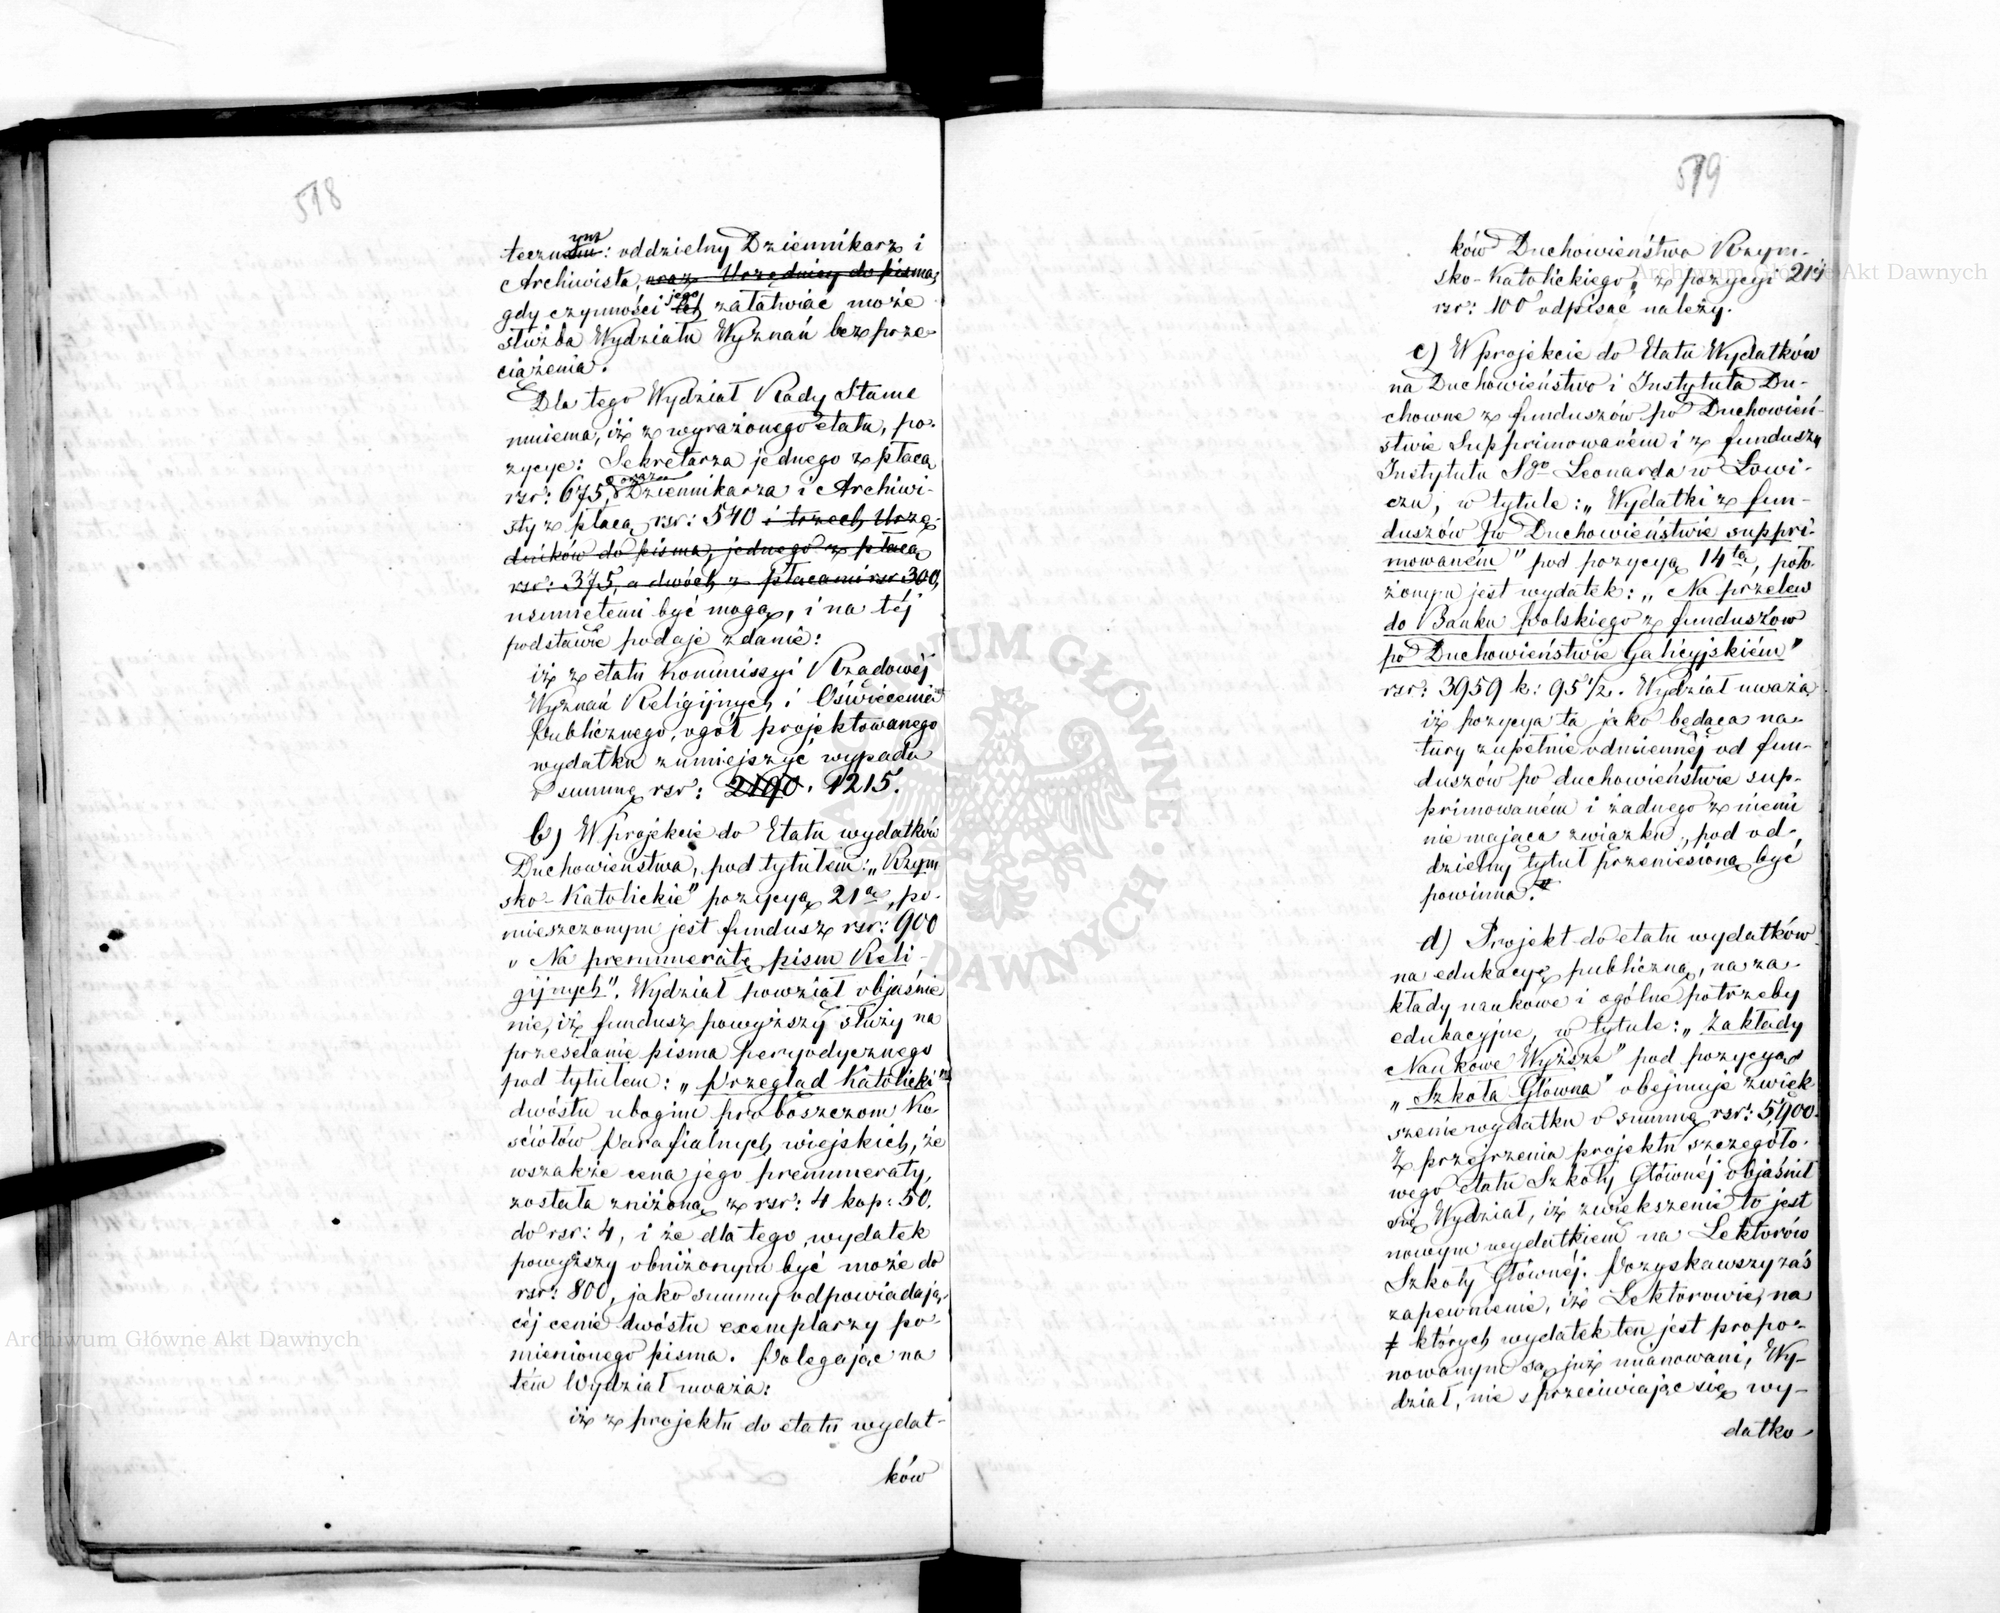 518
tecznym: oddzielny Dziennikarz i
Archiwista, oraz Urzędnicy do pisma,
gdy czynności jego załatwiać może
służba Wydziału Wyznań bez prze-
ciążenia.
Dla tego Wydział Rady Stanu
mniema, iż z wyrażonego etatu, po-
zycye: Sekretarza jednego z płacą
rsr: 675, oraz Dziennikarza i Archiwi-
sty z płacą rsr: 540 i trzech Urzę-
dników do pisma, jednego z płacą
rsr: 375, a dwóch z płacami rsr 300,
usuniętemi być mogą, i na téj
podstawie podaje zdanie:
iż z etatu Kommissyi Rządowéj
Wyznań Religijnych i Oświecenia
Publicznego, ogół projektowanego
wydatku zmniejszyć wypada
o summę rsr: 2190. 1215.
b) W projekcie do Etatu wydatków
Duchowieństwa, pod tytułem: „Rzym
sko-Katolickie" pozycyą 21ą, po-
mieszczonym jest fundusz rsr: 900
„Na prenumeratę pism Reli-
gijnych". Wydział powziął objaśnie
nie, iż fundusz powyższy służy na
przesełanie pisma peryodycznego
pod tytułem: „Przegląd Katolicki"
dwóstu ubogim proboszczom Ko-
ściołów Parafialnych wiejskich, że
wszakże cena jego prenumeraty,
została zniżoną z rsr: 4 kop: 50.
do rsr: 4, i że dla tego wydatek
powyższy obniżonym być może do
rsr: 800, jako summy odpowiadają-
céj cenie dwóstu exemplarzy po-
mienionego pisma. Polegając na
tém Wydział uważa:
iż z projektu do etatu wydat-
ków
519
ków Duchowieństwa Rzym-
sko-Katolickiego, z pozycyi 21éj
rsr: 100 odpisać należy.
c) W projekcie do Etatu Wydatków
na Duchowieństwo i Instytuta Du-
chowne z funduszów po Duchowień-
stwie Supprimowaném i z funduszu
Instytutu Sgo Leonarda w Łowi-
czu, w tytule: „Wydatki z fun-
duszów po Duchowieństwie suppri-
mowaném" pod pozycyą 14tą, poło-
żonym jest wydatek: „Na przelew
do Banku Polskiego z funduszów
po Duchowieństwie Galicyjskiém"
rsr: 3959 k: 95 1/2. Wydział uważa
iż pozycya ta jako będąca na-
tury zupełnie odmiennéj od fun-
duszów po duchowieństwie sup-
primowaném i żadnego z niemi
nie mająca związku, pod od-
dzielny tytuł przeniesioną być
powinna.
d) Projekt do etatu wydatków
na edukacyę publiczną, na za-
kłady naukowe i ogólne potrzeby
edukacyjne, w tytule: „Zakłady
Naukowe Wyższe" pod pozycyą
„Szkoła Główna" obejmuje zwięk
szenie wydatku o summę rsr: 5,900.
Z przejrzenia projektu szczegóło-
wego etatu Szkoły Głównéj objaśnił
się Wydział, iż zwiększenie to jest
nowym wydatkiem na Lektorów
Szkoły Głównéj. Pozyskawszy zaś
zapewnienie, iż Lektorowie, na
których wydatek ten jest propo-
nowanym są już mianowani, Wy-
dział, nie sprzeciwiając się wy-
datko
Archiwum Główne Akt Dawnych
Archiwum Główne Akt Dawnych
ARCHIWUM GŁÓWNE AKT DAWNYCH